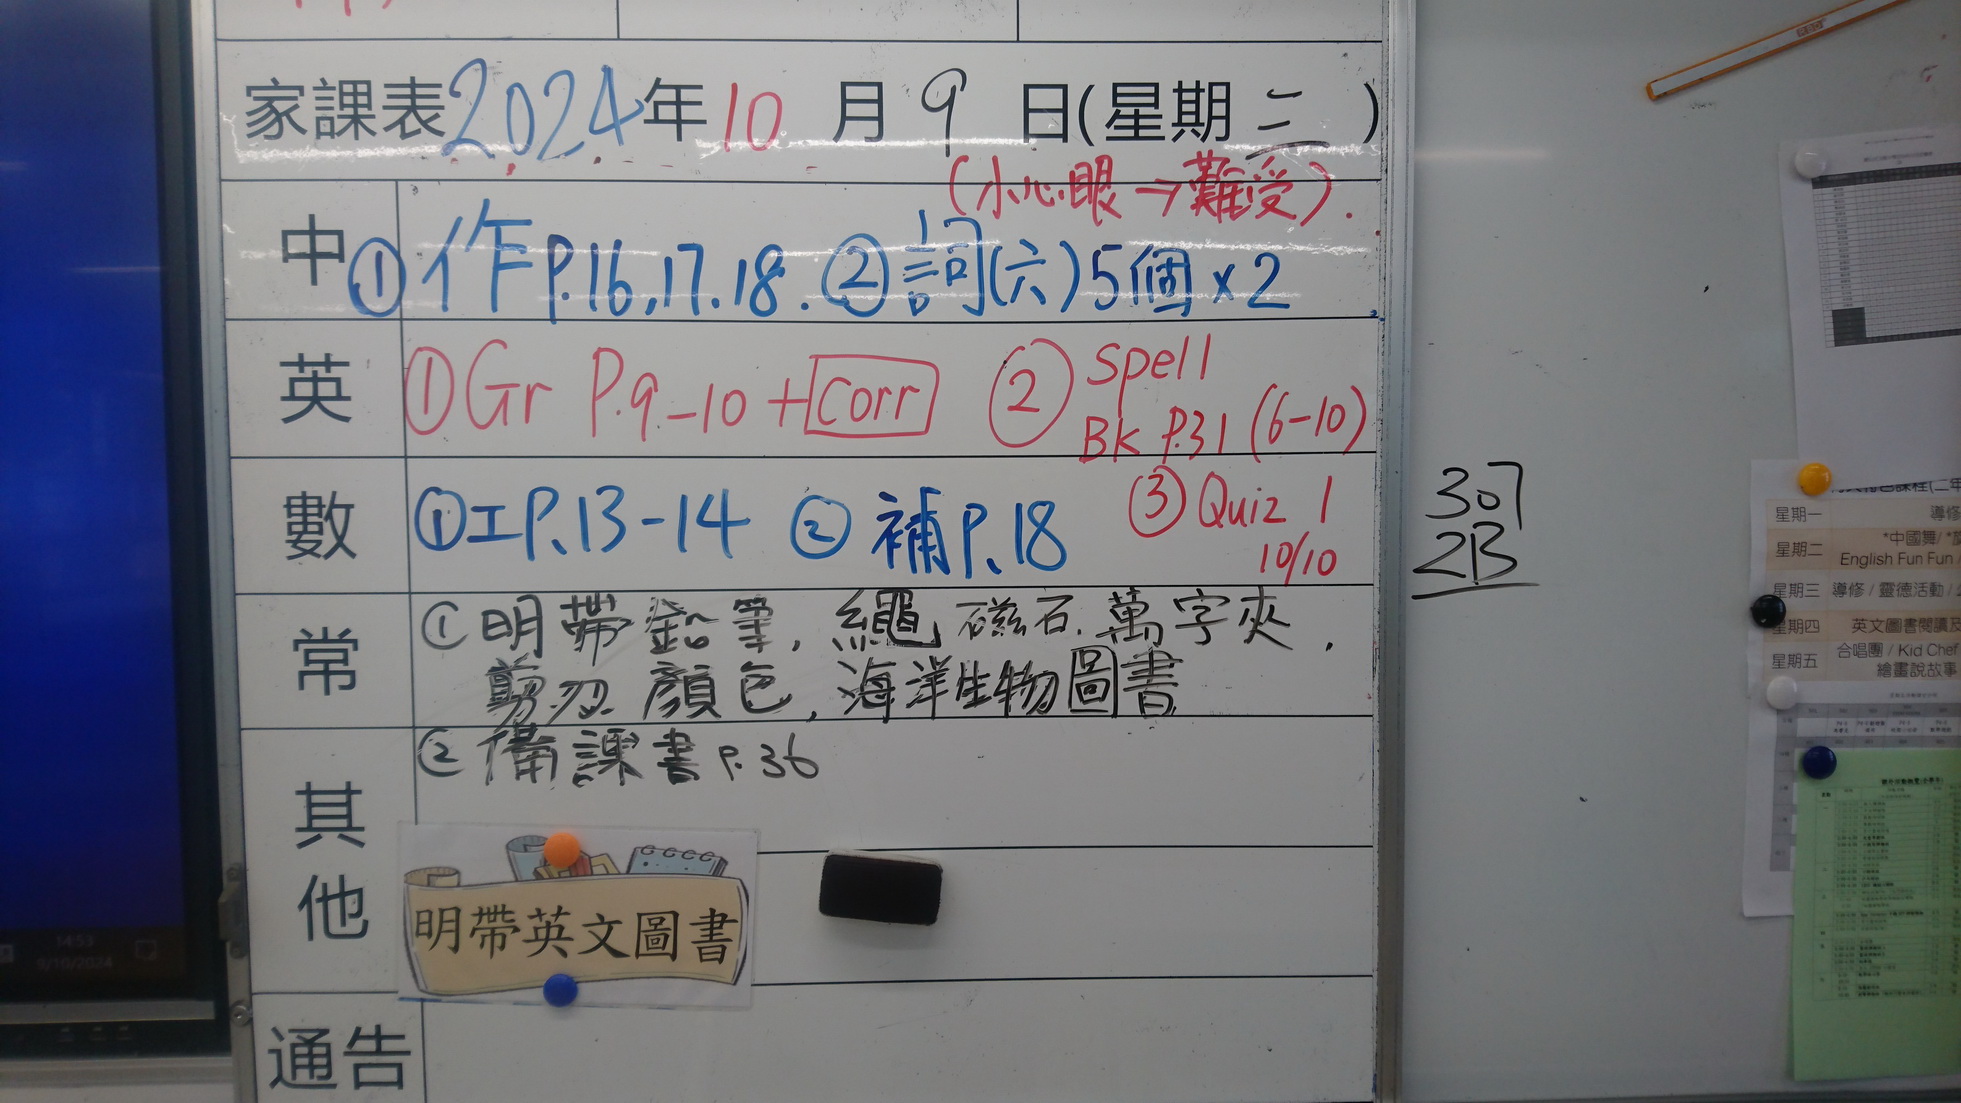 家課表2024年10月9日(星期三)
(小心眼→難受).
中 ①作P.16,17.18. ②詞(六)5個×2
英 ①Gr P.9-10+Corr ②Spell
Bk P.31 (6-10)
③Quiz 1
10/10
數 ①工P.13-14 ②補P.18
常 ①明帶鉛筆,繩 磁石.萬字夾,
剪刀 顏色,海洋生物圖書
②備課書P.36
其他
明帶英文圖書
通告
307
2B
14:53
9/10/2024
星期一 導修
星期二 *中國舞/
English Fun Fun /
星期三 導修 / 靈德活動 /
星期四 英文圖書閱讀及
星期五 合唱團 / Kid Chef
繪畫說故事